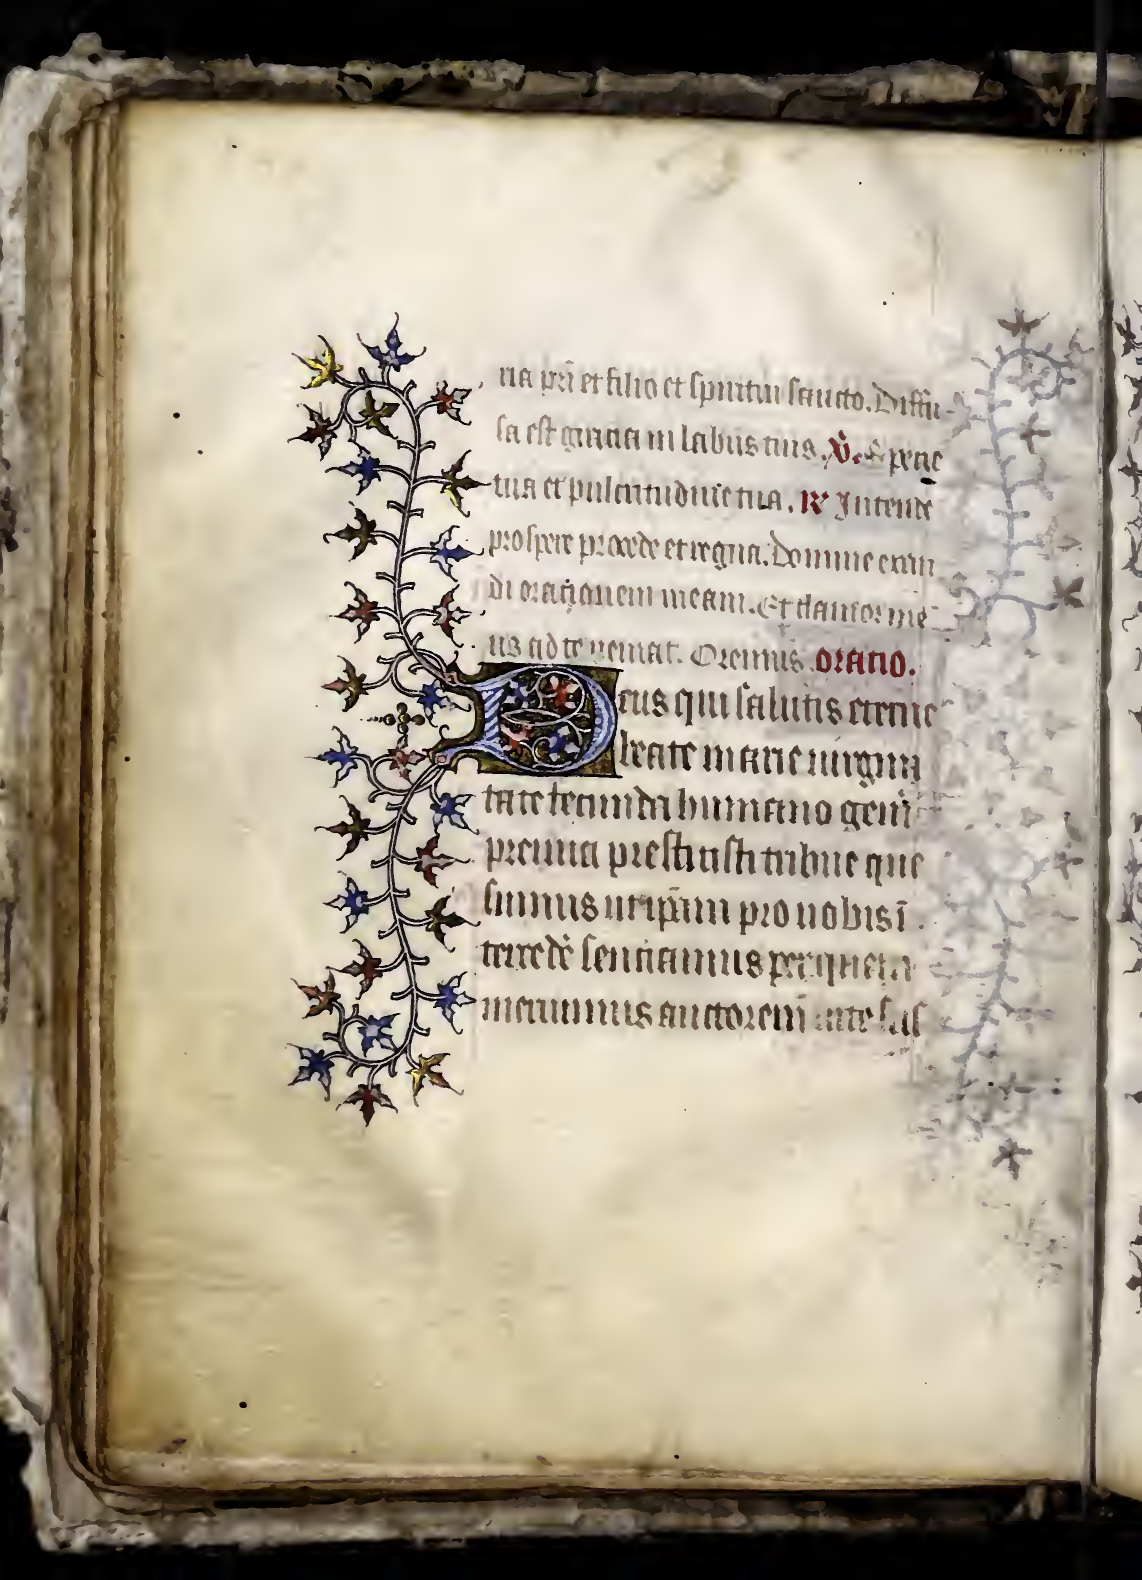 ria pr̄i et filio et spiritui sancto. Diffu
sa est gracia in labiis tuis. V̄. Specie
tua et pulcritudine tua. R̷ Intende
prospere procede et regna. Domine exau
di orationem meam. Et clamor me
us ad te veniat. Oremus. oratio.
Deus qui salutis eterne
beate marie uirgini
tate fecunda humano geni
premia prestitisti tribue que
sumus ut ip̄am pro nobis ī
tercedē sentiamus per quem
meruimus auctorem̄ uite sus